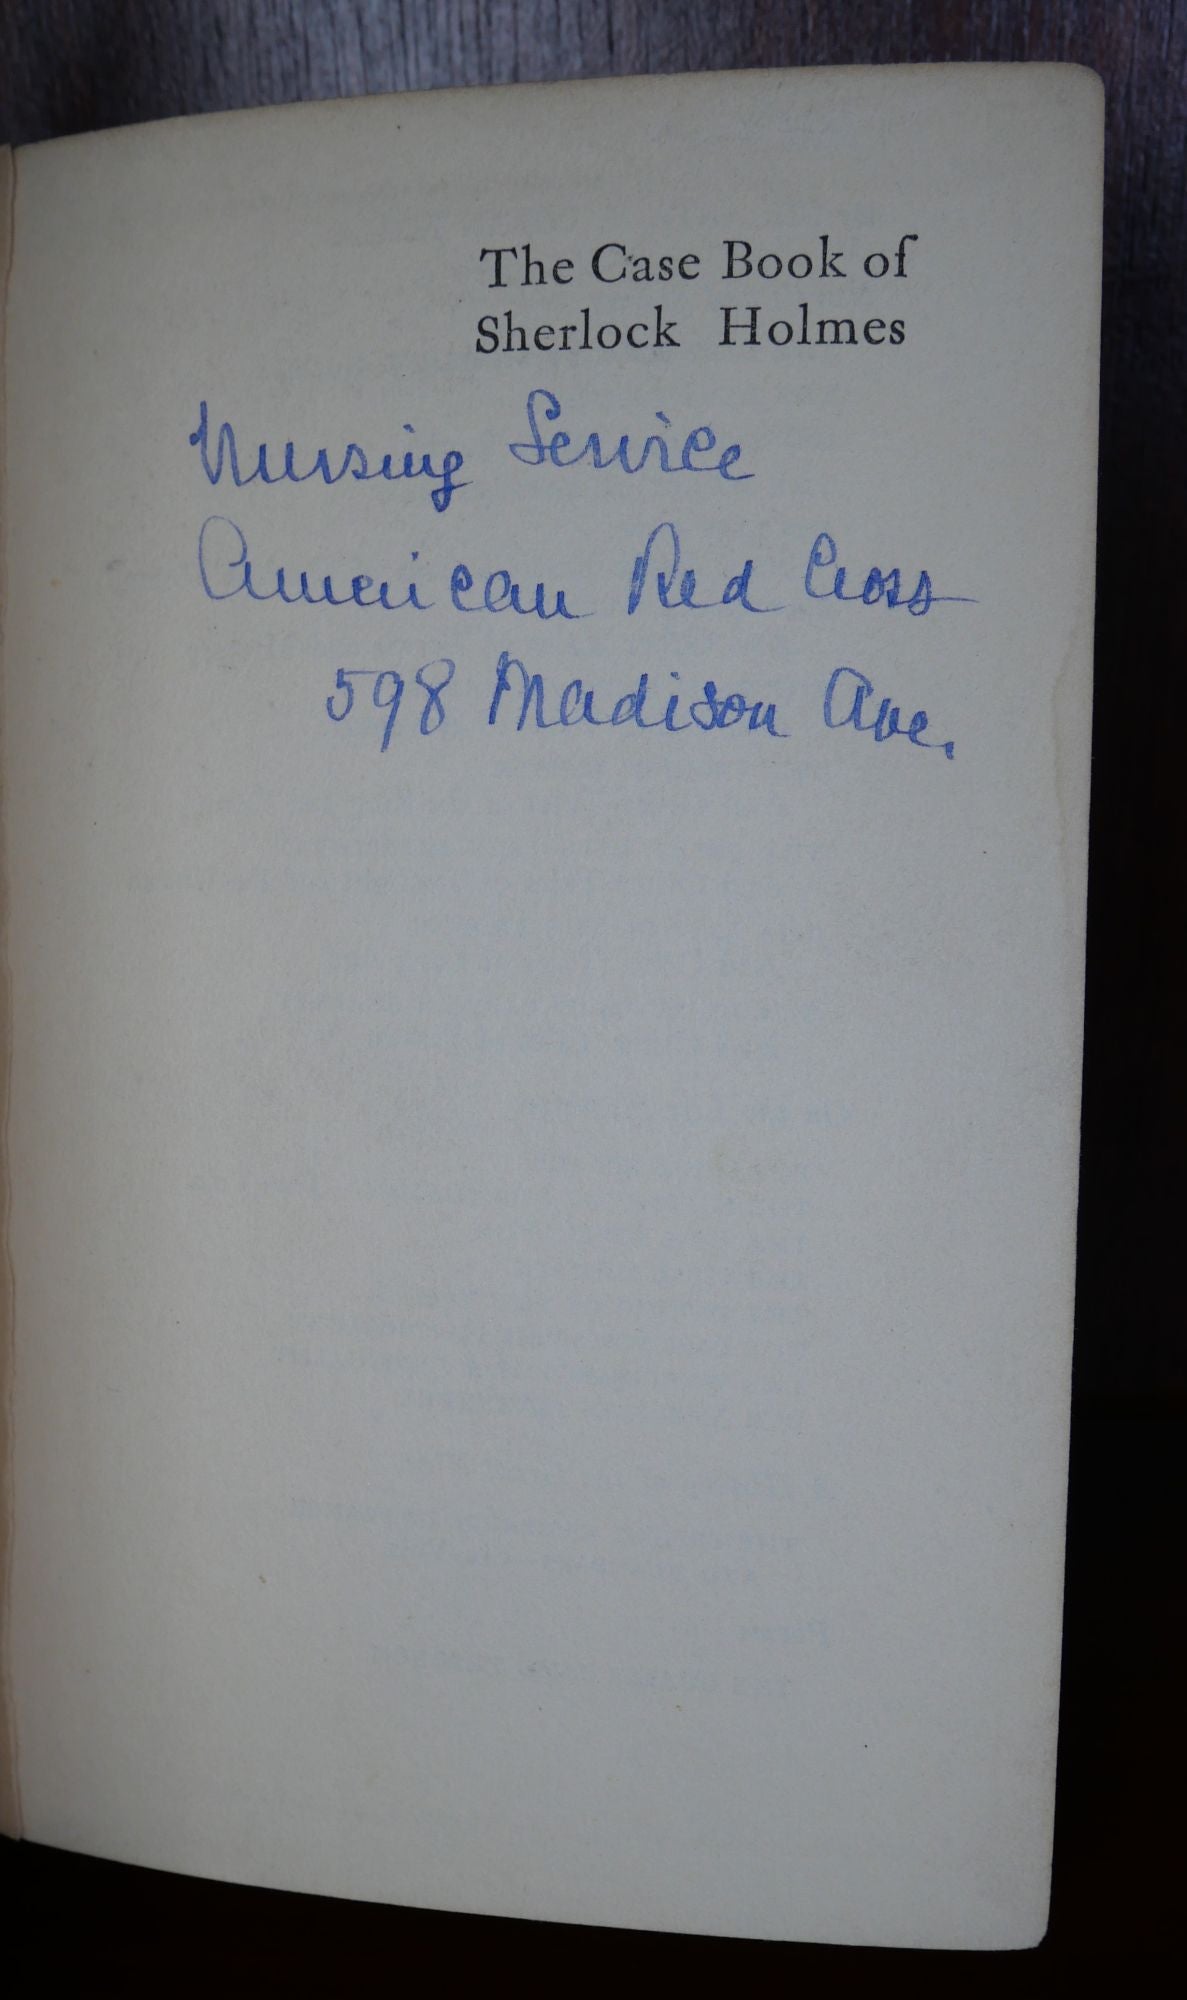 The Case Book of
Sherlock Holmes
Nursing Service
American Red Cross
598 Madison Ave.